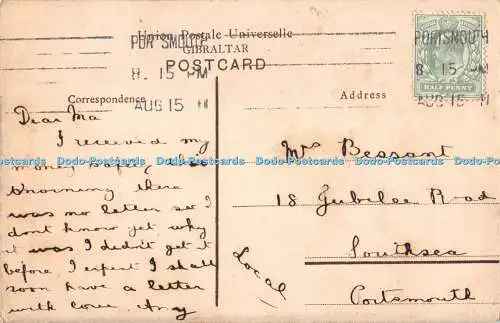 Union Postale Universelle
GIBRALTAR
POSTCARD
PORTSMOUTH
8. 15 PM
AUG 15
PORTSMOUTH
8 15 PM
AUG 15
HALF PENNY
Correspondence
Address
Dear Ma
I received my
money safely this
morning there
was no letter so I
dont know yet why
it was I didn't get it
before I expect I shall
soon have a letter
with love.
Local
Mrs Bessant
18 Jubilee Road
Southsea
Portsmouth
Dodo-Postcards Dodo-Postcards Dodo-Postcards Dodo-Postcards Dodo-Postcards